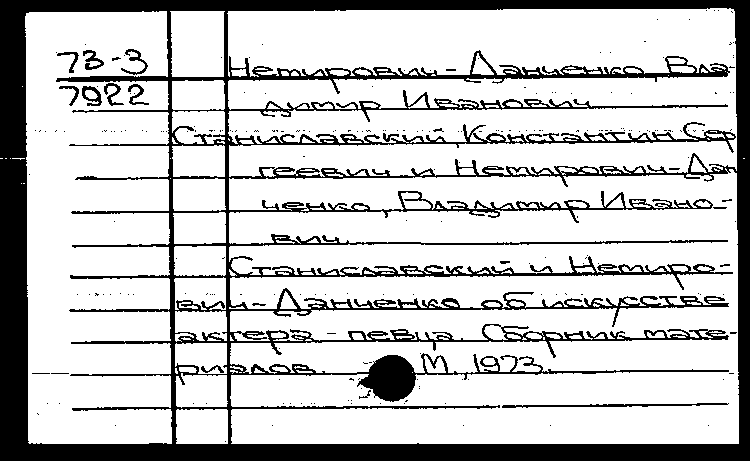 73-3
7922
Немирович-Данченко, Вла-
димир Иванович
Станиславский, Константин Сер
геевич и Немирович-Дан
ченко, Владимир Ивано-
вич.
Станиславский и Немиро-
вич-Данченко об искусстве
актера - певца. Сборник мате-
риалов. М., 1973.